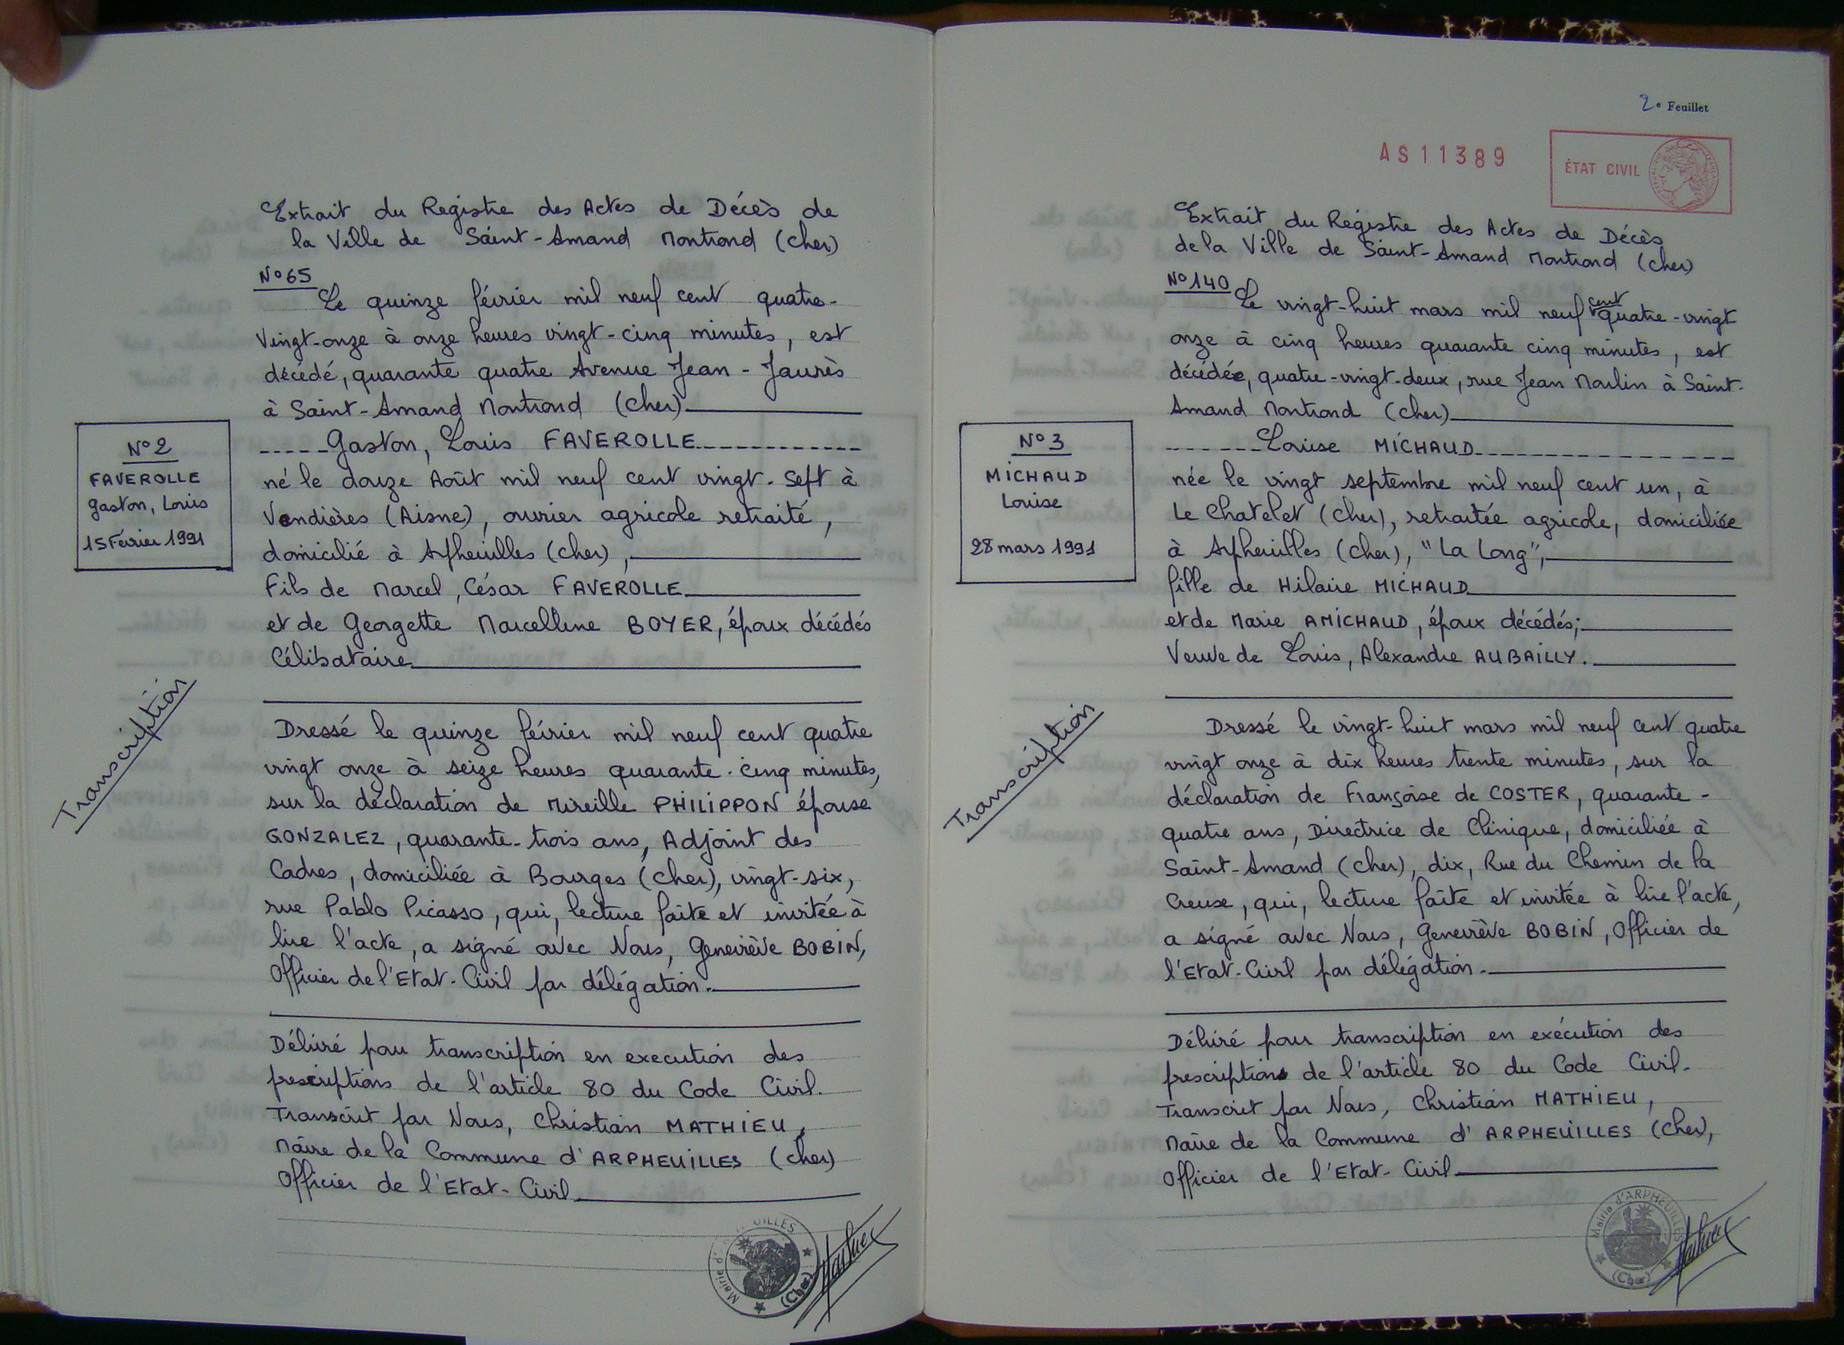 Extrait du Registre des Actes de Décès de
la Ville de Saint-Amand Montrond (Cher)
N°65
Le quinze février mil neuf cent quatre-
vingt-onze à onze heures vingt-cinq minutes, est
décédé, quarante quatre Avenue Jean-Jaurès
à Saint-Amand Montrond (Cher)
Gaston, Louis FAVEROLLE
né le douze Août mil neuf cent vingt-sept à
Vendières (Aisne), ouvrier agricole retraité,
domicilié à Arpheuilles (Cher),
Fils de Marcel, César FAVEROLLE
et de Georgette Marcelline BOYER, époux décédés
Célibataire
N°2
FAVEROLLE
Gaston, Louis
15 Février 1991
Transcription
Dressé le quinze février mil neuf cent quatre
vingt onze à seize heures quarante-cinq minutes,
sur la déclaration de Mireille PHILIPPON épouse
GONZALEZ, quarante-trois ans, Adjoint des
Cadres, domiciliée à Bourges (Cher), vingt-six,
rue Pablo Picasso, qui, lecture faite et invitée à
lire l'acte, a signé avec Nous, Geneviève BOBIN,
Officier de l'Etat-Civil par délégation.
Délivré pour transcription en execution des
prescriptions de l'article 80 du Code Civil.
Transcrit par Nous, Christian MATHIEU,
Maire de la Commune d'ARPHEUILLES (Cher)
Officier de l'Etat-Civil
2e Feuillet
AS11389
ÉTAT CIVIL
Extrait du Régistre des Actes de Décès
de la Ville de Saint-Amand Montrond (Cher)
N°140
Le vingt-huit mars mil neuf cent quatre-vingt
onze à cinq heures quarante cinq minutes, est
décédée, quatre-vingt-deux, rue Jean Moulin à Saint-
Amand Montrond (Cher)
Louise MICHAUD
née le vingt septembre mil neuf cent un, à
Le Chatelet (Cher), retraitée agricole, domiciliée
à Arpheuilles (Cher), "La Long",
fille de Hilaire MICHAUD
et de Marie AMICHAUD, époux décédés;
Veuve de Louis, Alexandre AUBAILLY.
N°3
MICHAUD
Louise
28 mars 1991
Transcription
Dressé le vingt-huit mars mil neuf cent quatre
vingt onze à dix heures trente minutes, sur la
déclaration de Françoise de COSTER, quarante-
quatre ans, Directrice de Clinique, domiciliée à
Saint-Amand (Cher), dix, Rue du Chemin de la
Creuse, qui, lecture faite et invitée à lire l'acte,
a signé avec Nous, Geneviève BOBIN, Officier de
l'Etat-Civil par délégation.
Délivré pour transcription en exécution des
prescriptions de l'article 80 du Code Civil.
Transcrit par Nous, Christian MATHIEU,
Maire de la Commune d'ARPHEUILLES (Cher),
Officier de l'Etat-Civil
Mairie d'ARPHEUILLES
(Cher)